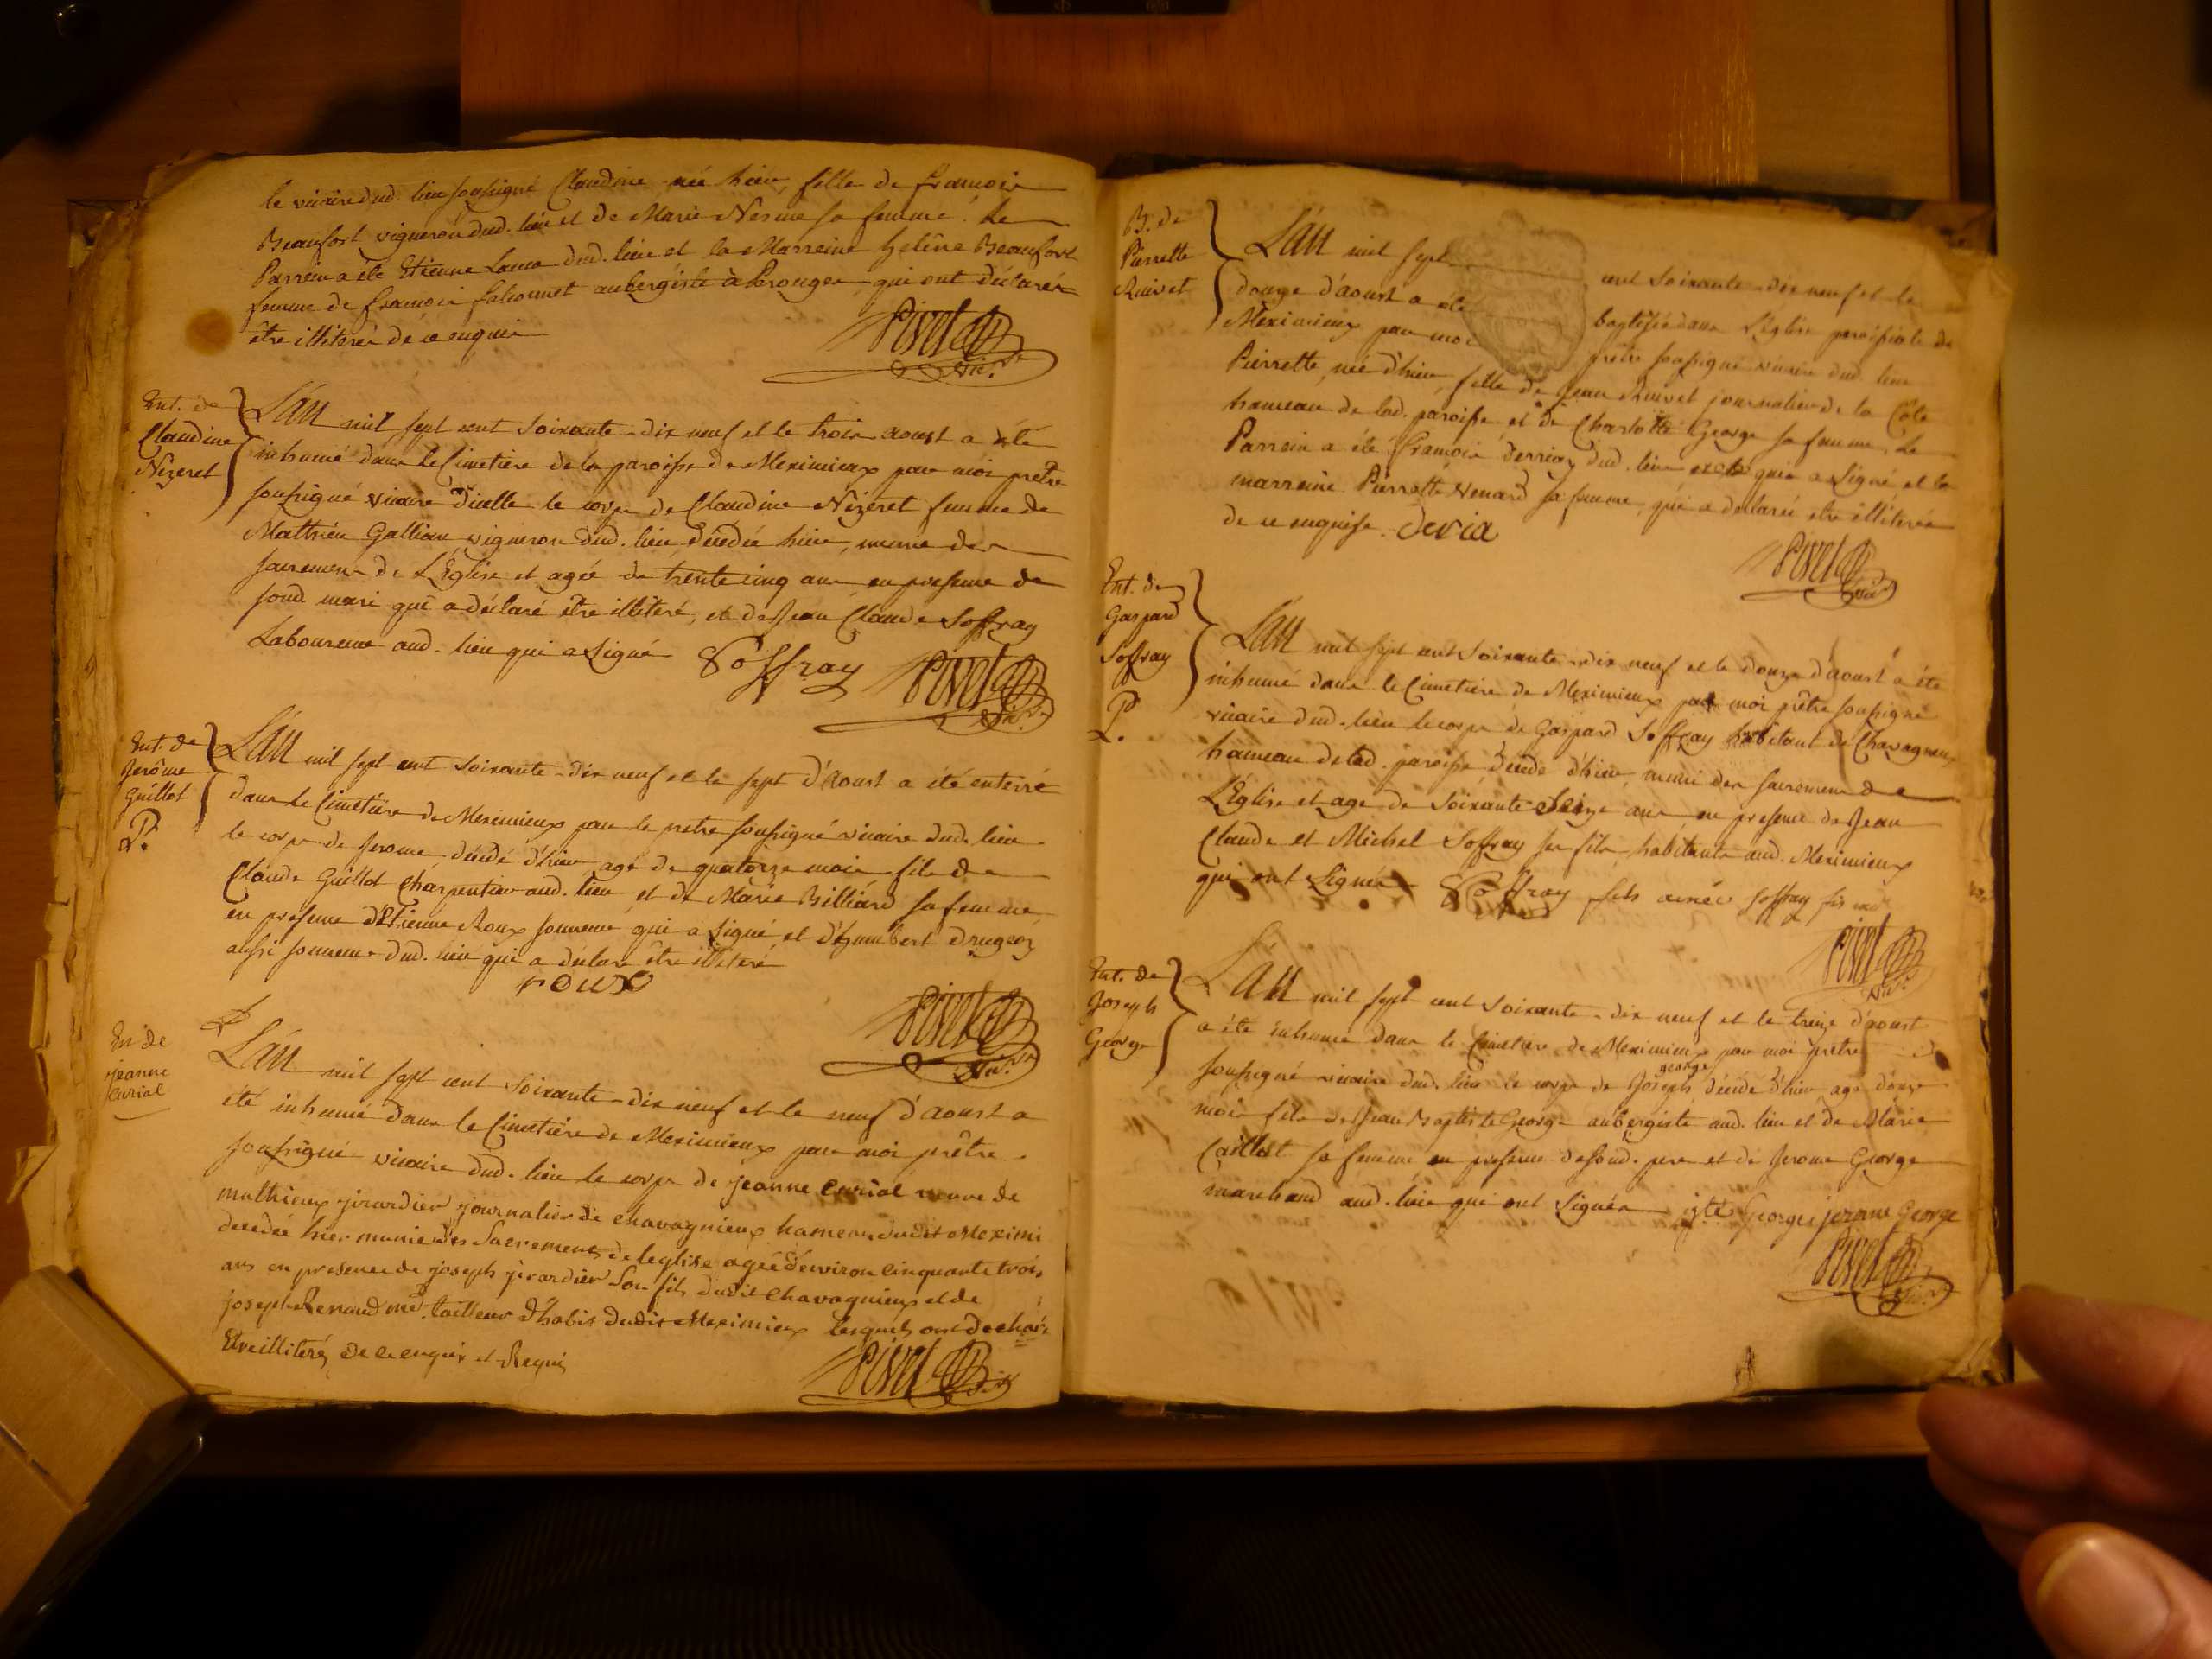 le vicaire dud. lieu soussigné Claudine née hier, fille de francois
Beaufort vigneron dud. lieu et de Marie Nesme sa femme. Le
Parrein a été Etienne Lama dud. lieu et la Marreine helêne Beaufort
femme de francois falconnet aubergiste à Perouges, qui ont déclarés
être illiterés de ce enquis
Pivet vic.
Ent. de
Claudine
Nizeret
L'an mil sept cent soixante-dix neuf et le trois aoust a été
inhumé dans le Cimetiere de la paroisse de Meximieux par moi prêtre
soussigné vicaire d'icelle le corps de Claudine Nizeret femme de
Mathieu Gallian vigneron dud. lieu, décédée hier, munie des
sacremens de L'Église et agée de trente cinq ans en presence de
sond. mari qui a déclaré être illiteré, et de Jean Claude Soffray
Laboureur aud. lieu qui a signé Soffray Pivet vic.
Ent. de
Jerôme
Guillot
P.
L'an mil sept cent soixante-dix neuf et le sept d'aoust a été enterré
dans le Cimetiére de Meximieux par le pretre soussigné vicaire dud. lieu
le corps de Jerome décédé d'hier, agé de quatorze mois fils de
Claude Guillot Charpentier aud. lieu et de Marie Billiard sa femme
en presence d'Etienne Roux sonneur qui a signé et d'humbert drugeoz
aussi sonneur dud. lieu qui a déclaré être illiteré
roux
Pivet vic.
En de
jeanne
Curial
L'an mil sept cent soixante-dix neuf et le neuf d'aoust a
été inhumé dans le Cimetiére de Meximieux par moi prêtre
soussigné vicaire dud. lieu le corps de jeanne Curial veuve de
mathieux jirardier journalier de chavagnieux hameau dudit Meximi
decedée hier munie des Sacremens de leglise agée d'environ cinquante trois
ans en presence de joseph jirardier son fils dudit chavagnieux et de
joseph Renaud md. tailleur d'habis dudit Meximieux lesquels ont declaré
Etre illiterés de ce enquis et Requis
Pivet vic.
B. de
Pierrette
Ruivet
L'an mil sept cent soixante-dix neuf et le
douze d'aoust a été baptisée dans L'église paroissiale de
Meximieux par moi prêtre soussigné vicaire dud. lieu
Pierrette, née d'hier, fille de Jean Ruivet journalier de la Côte
hameau de lad. paroisse et de Charlotte George sa femme. Le
Parrein a été francois derriaz dud. lieu qui a signé et la
marreine Pierrette Venard sa femme, qui a declaré être illiterée
de ce enquise. deria
Pivet vic.
Ent. de
Gaspard
Soffray
P.
L'an mil sept cent soixante-dix neuf et le douze d'aoust a été
inhumé dans le Cimetiere de Meximieux par moi prêtre soussigné
vicaire dud. lieu le corps de Gaspard Soffray habitant de Chavagneux
hameau de lad. paroisse décédé d'hier, muni des sacremens de
L'Église et agé de soixante seize ans en presence de Jean
Claude et Michel Soffray ses fils, habitants aud. Meximieux
qui ont signés Soffray fils ainée soffray fis
Pivet vic.
Ent. de
Joseph
George
L'an mil sept cent soixante-dix neuf et le treize d'aoust
a été inhumé dans le Cimetiere de Meximieux par moi pretre
george
soussigné vicaire dud. lieu le corps de Joseph décédé d'hier, agé d'onze
mois fils de Jean Baptiste George aubergiste aud. lieu et de Marie
Caillot sa femme en presence desond. pere et de Jerome George
marchand aud. lieu qui ont signés jte George jerome George
Pivet vic.